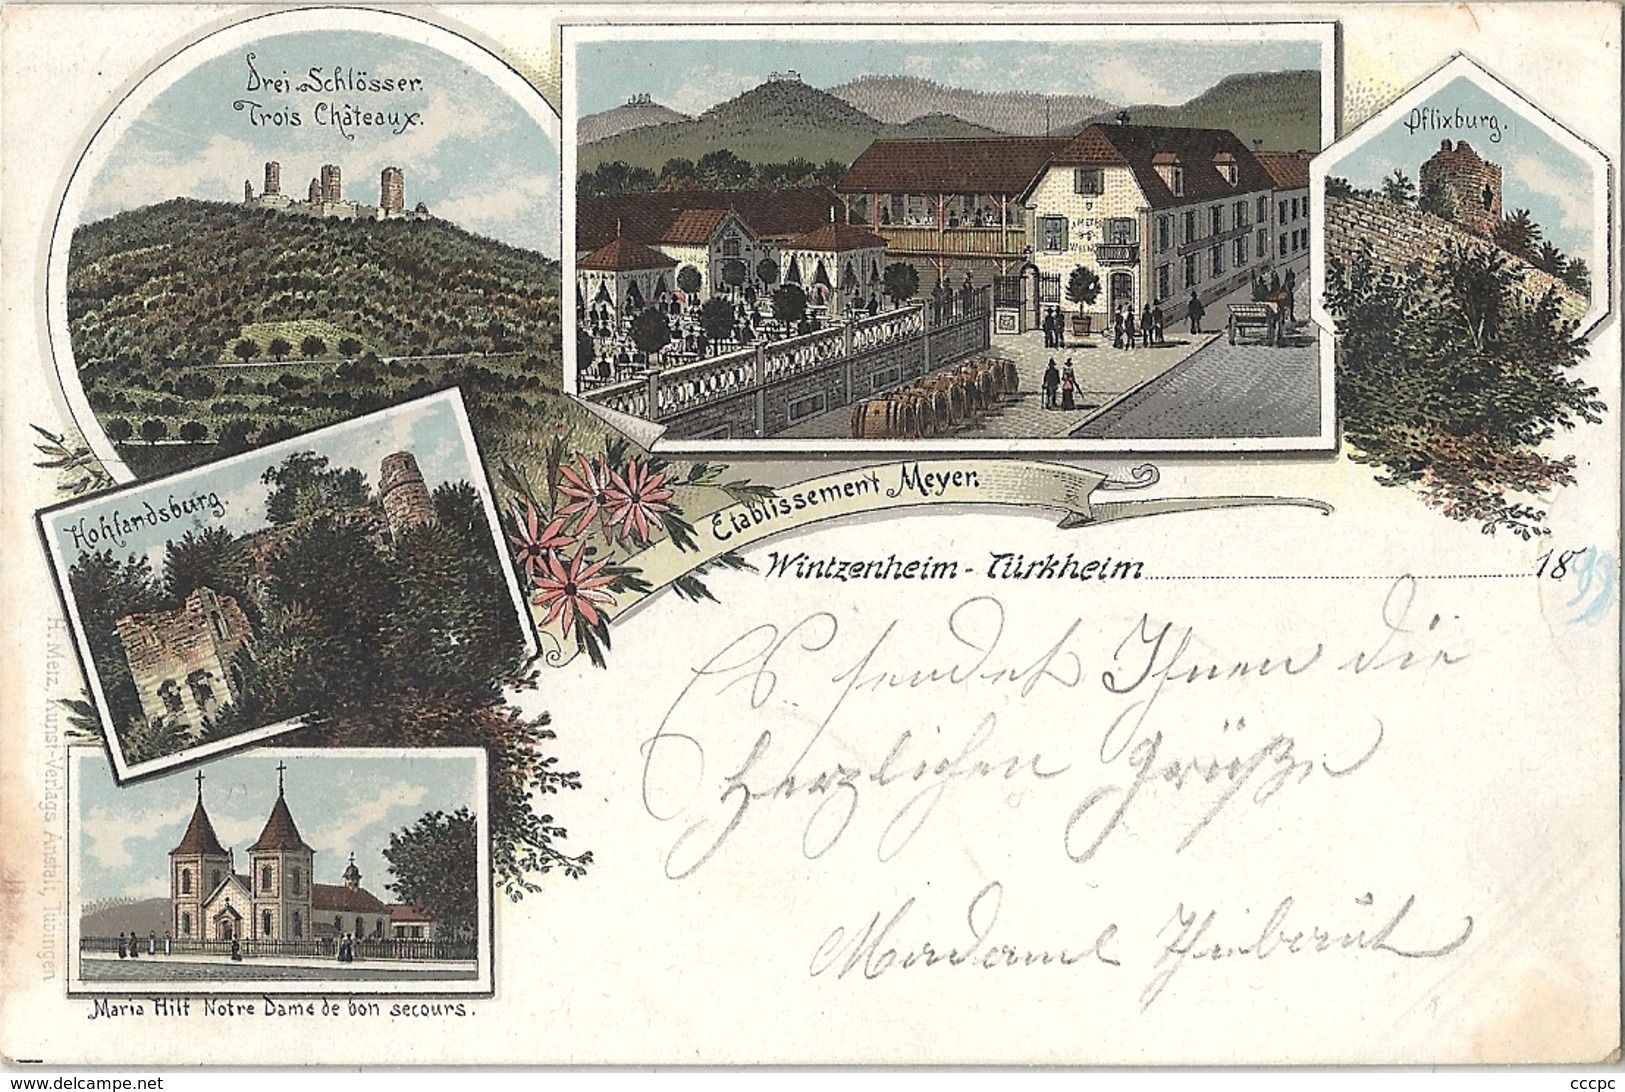 Drei Schlösser.
Trois Châteaux.
Pflixburg.
Hohlandsburg.
Etablissement Meyer.
Wintzenheim - Türkheim 1899
Es sendet Ihnen die
herzlichen Grüße
Madame
Maria Hilf Notre Dame de bon secours.
H. Metz, Kunst-Verlags Anstalt, Tübingen
delcampe.net
cccpc